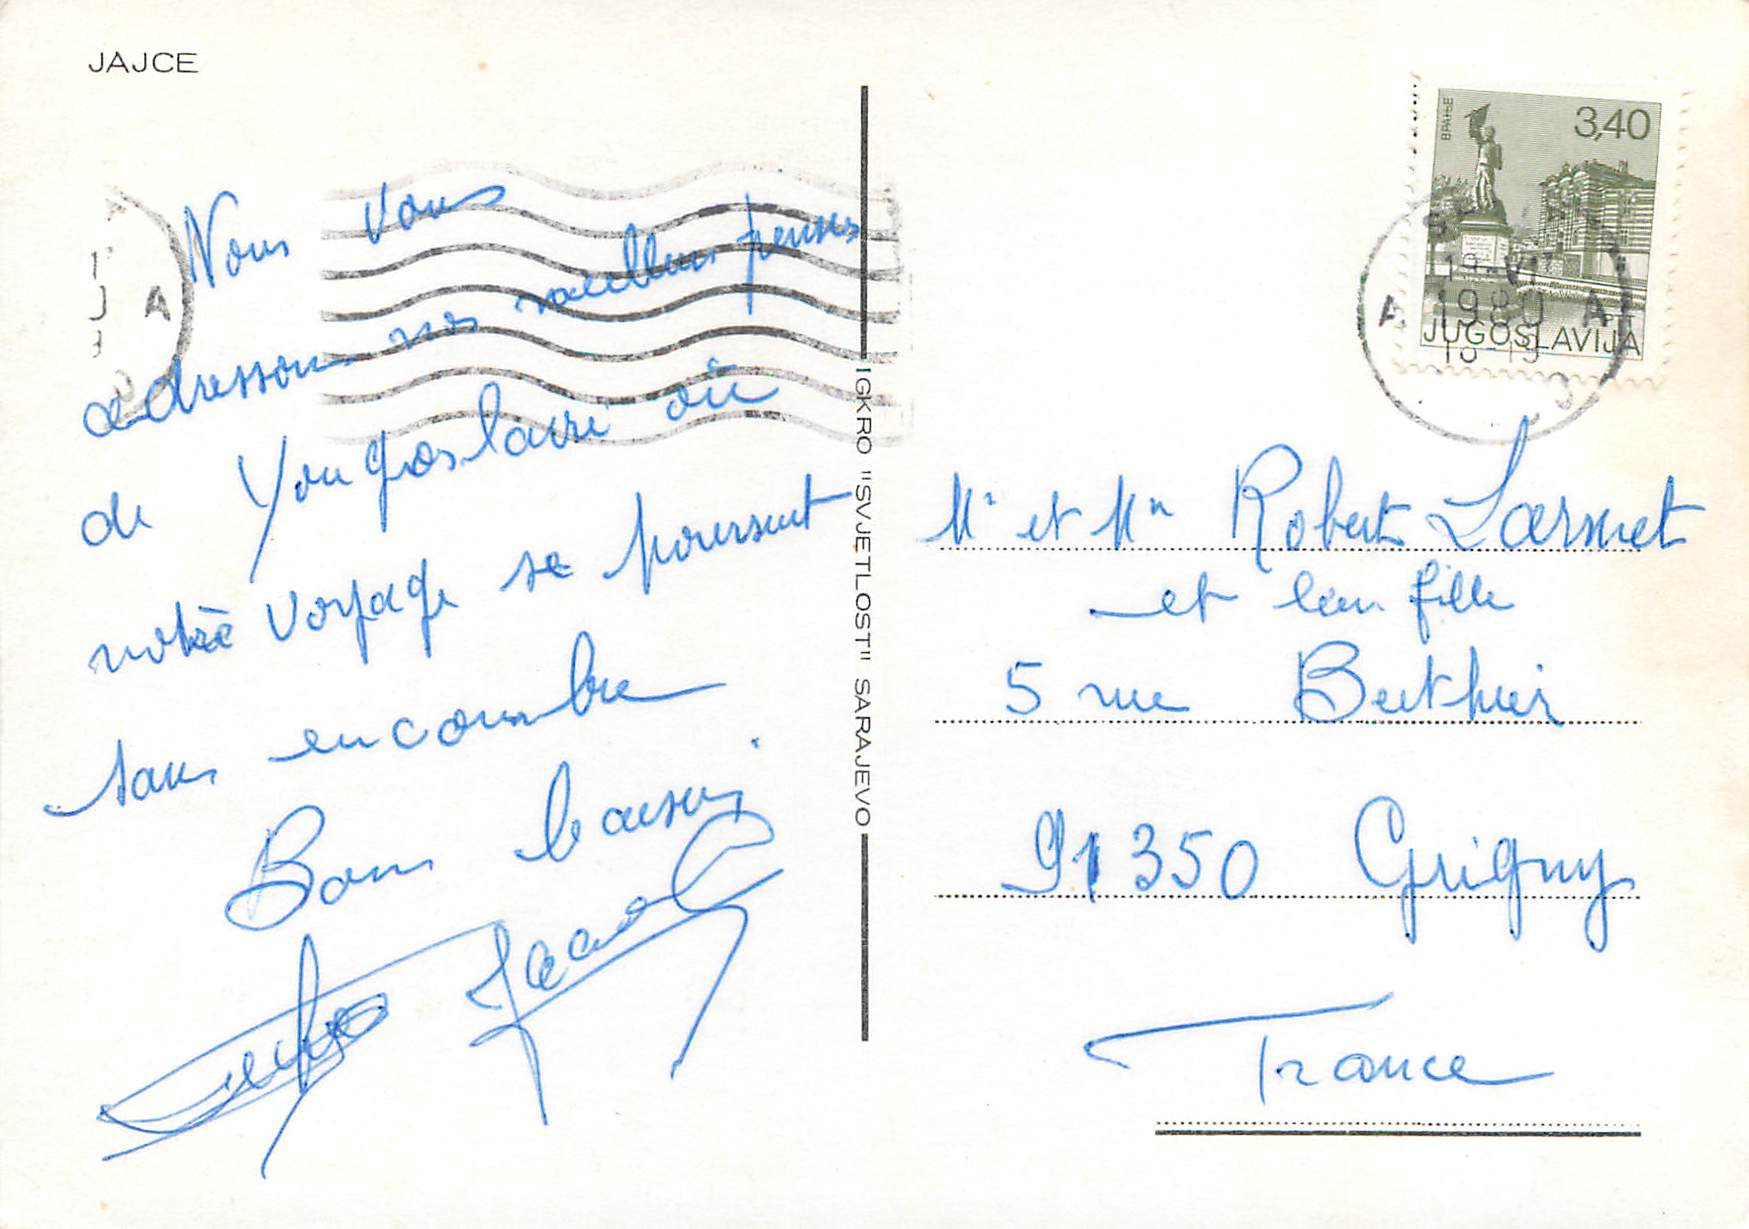 JAJCE
Nous vous
adressons nos meilleurs pensées
de Yougoslavie où
notre voyage se poursuit
sans encombre
Bons baisers
IGKRO "SVJETLOST" SARAJEVO
ВРАЊЕ
3,40
JUGOSLAVIJA
1980
A A
A
Mr et Mme Robert Larmet
et leur fille
5 rue Berthier
91350 Grigny
France